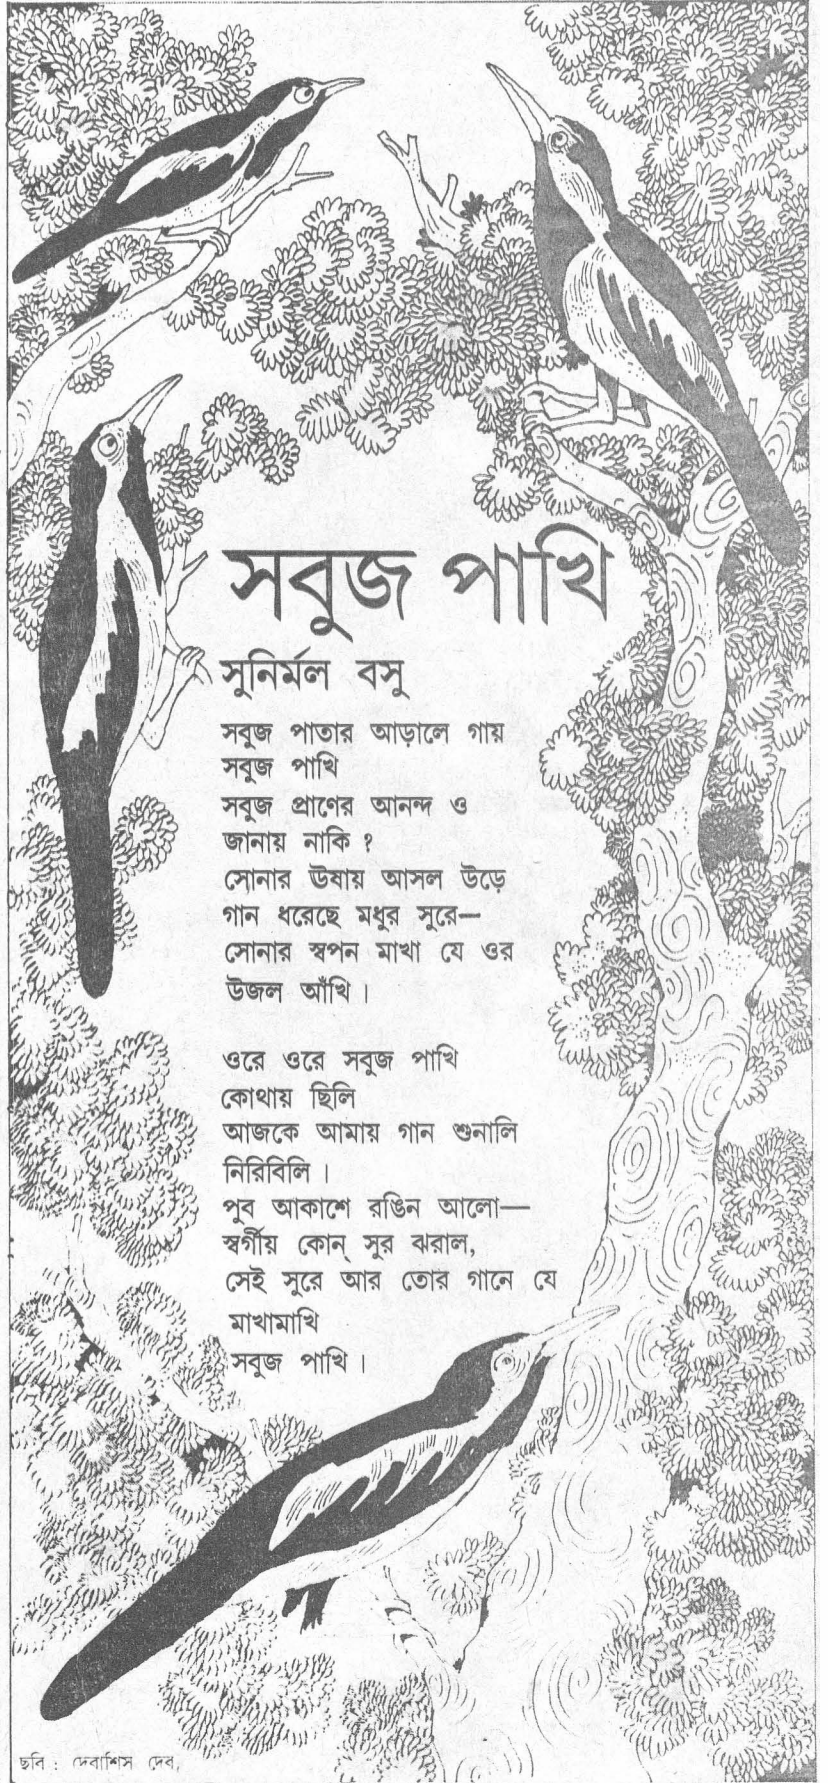 সবুজ পাখি
সুনির্মল বসু
সবুজ পাতার আড়ালে গায়
সবুজ পাখি
সবুজ প্রাণের আনন্দ ও
জানায় নাকি ?
সোনার ঊষায় আসল উড়ে
গান ধরেছে মধুর সুরে—
সোনার স্বপন মাখা যে ওর
উজল আঁখি ।
ওরে ওরে সবুজ পাখি
কোথায় ছিলি
আজকে আমায় গান শুনালি
নিরিবিলি ।
পুব আকাশে রঙিন আলো—
স্বর্গীয় কোন্ সুর ঝরাল,
সেই সুরে আর তোর গানে যে
মাখামাখি
সবুজ পাখি ।
ছবি : দেবাশিস দেব,